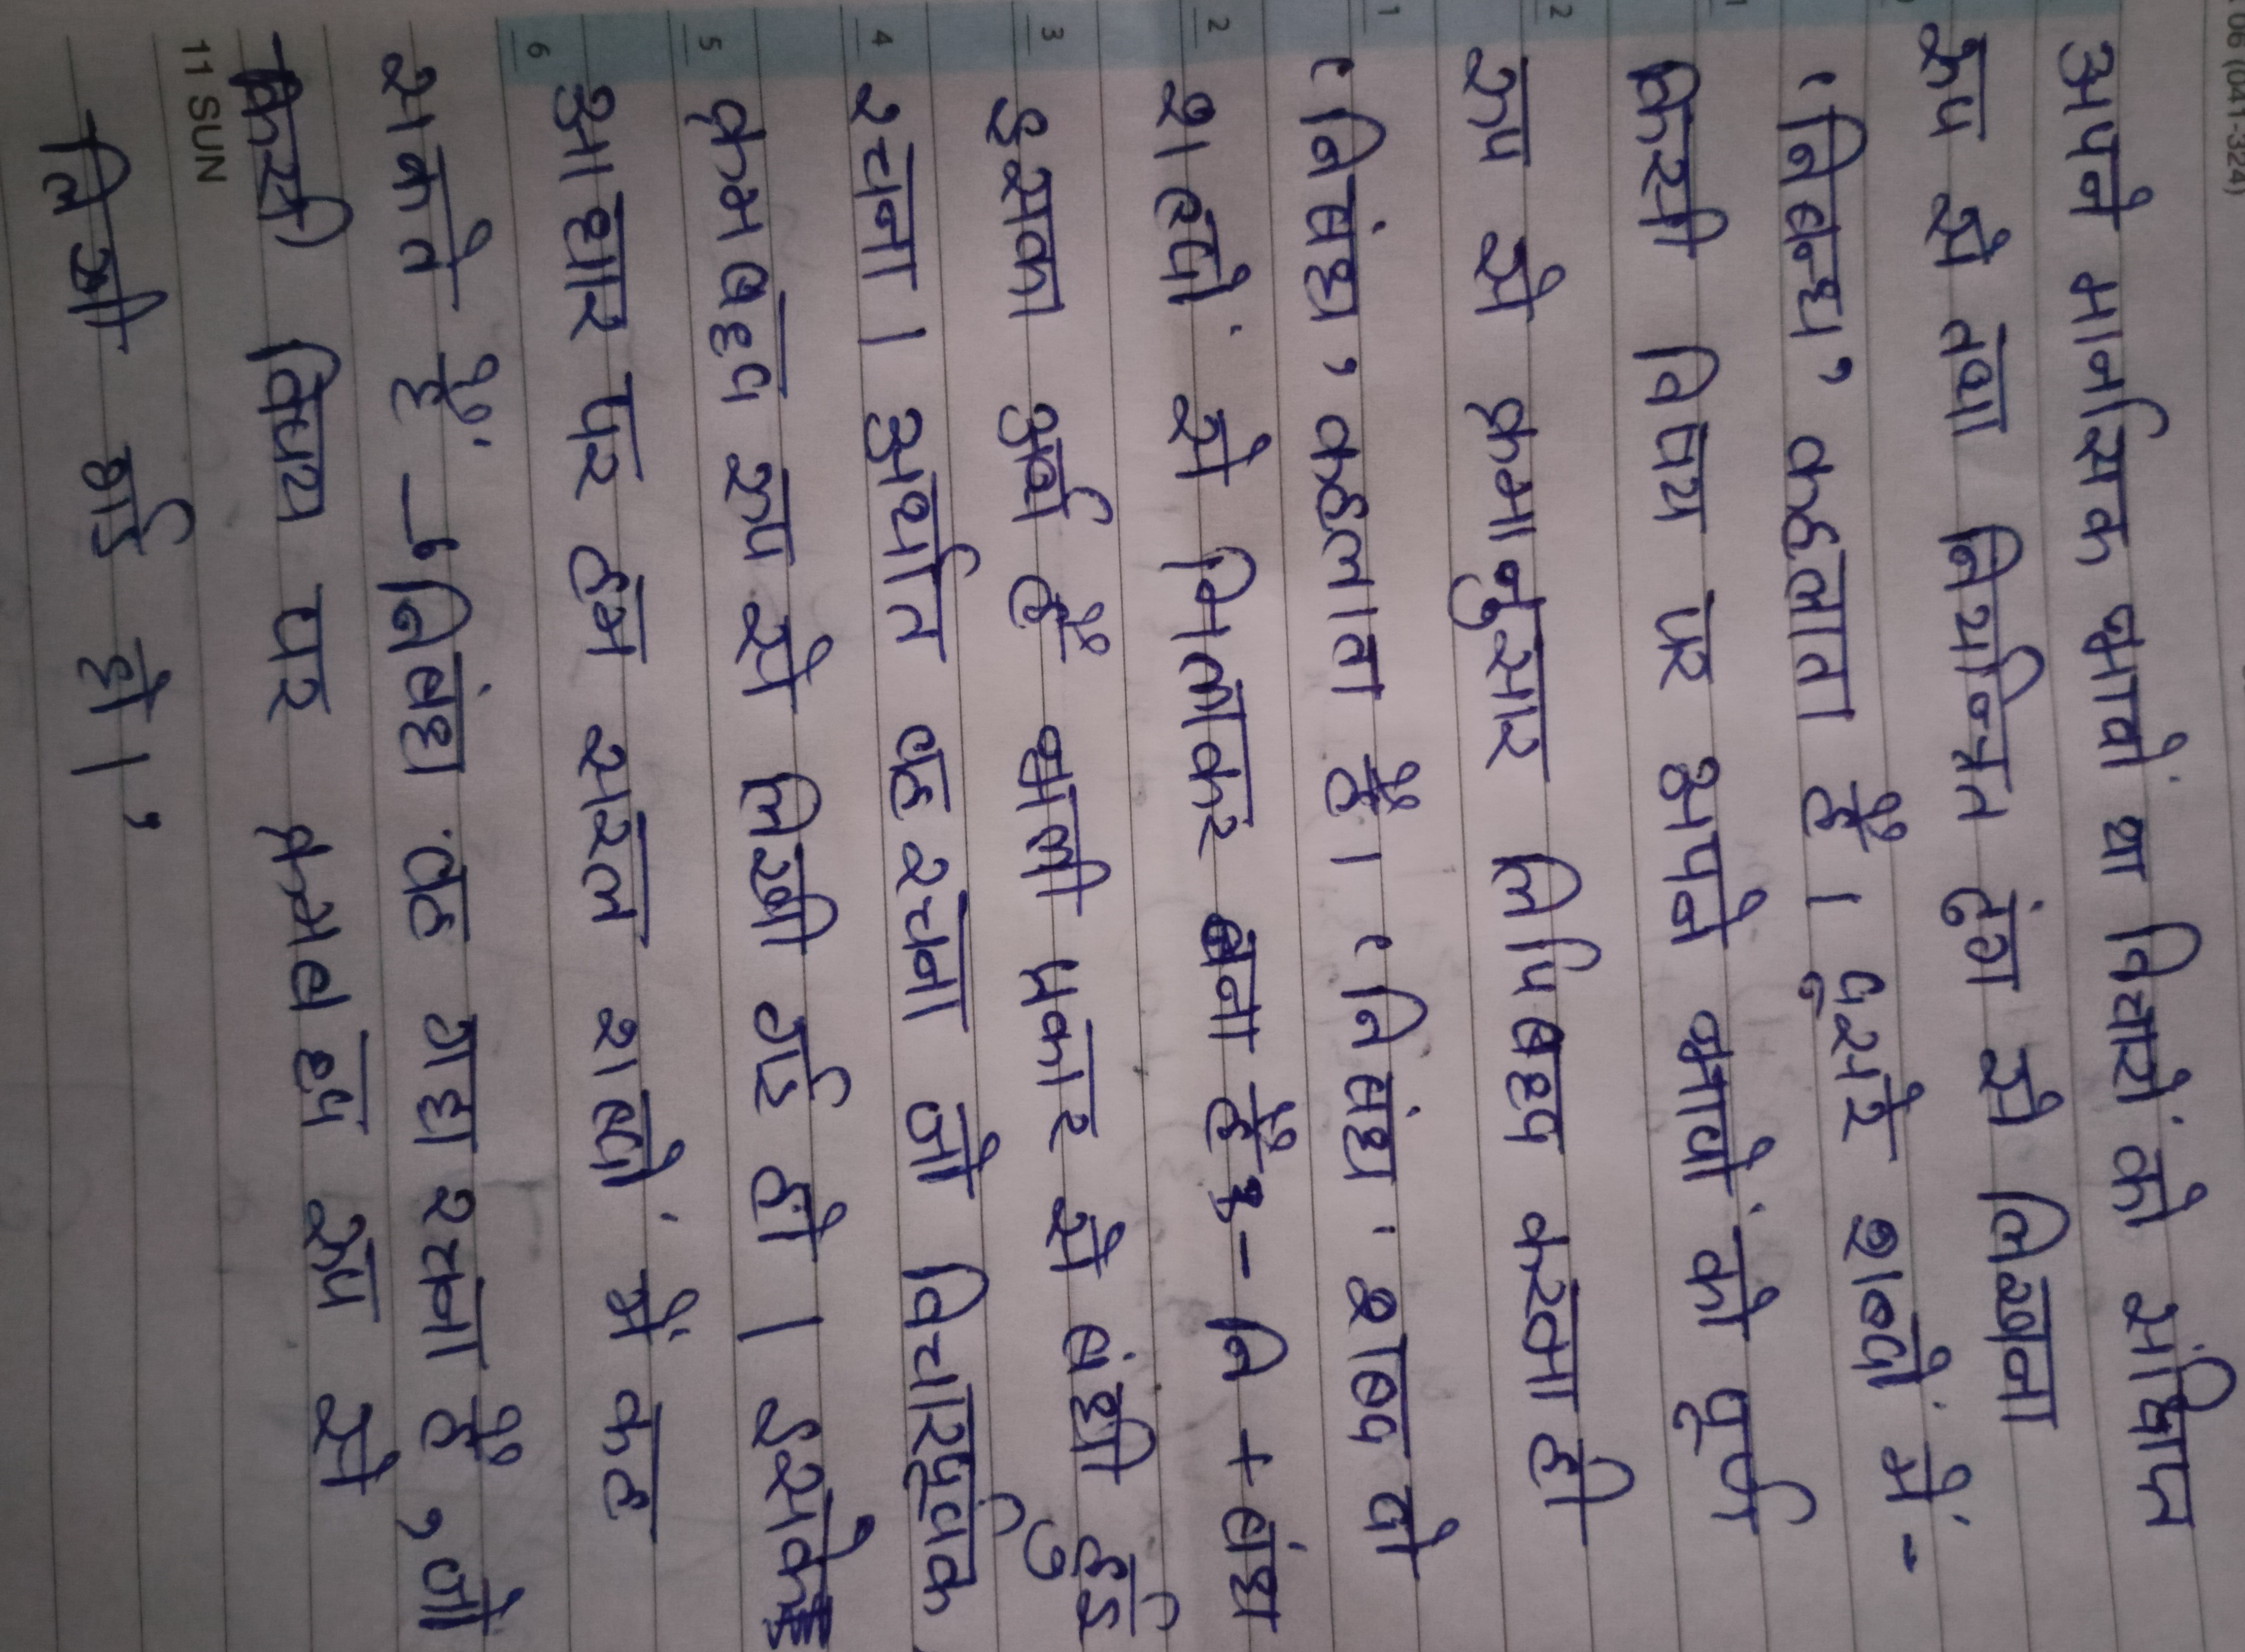 06 (041-324)
अपने मानसिक भावों या विचारों को संक्षिप्त
रूप से तथा नियन्त्रित ढंग से लिखना
'निबन्ध' कहलाता है। दूसरे शब्दों में-
किसी विषय पर अपने भावों को पूर्ण
रूप से क्रमानुसार लिपिबद्ध करना ही
'निबंध' कहलाता है। 'निबंध' शब्द दो
शब्दों से मिलकर बना है- नि + बंध
इसका अर्थ है भली प्रकार से बंधी हुई
रचना। अर्थात वह रचना जो विचारपूर्वक,
क्रमबद्ध रूप से लिखी गई हो। इसके
आधार पर हम सरल शब्दों में कह
सकते हैं - 'निबंध वह गद्य रचना है, जो
किसी विषय पर क्रमबद्ध रूप से
लिखी गई हो।'
1
2
1
2
3
4
5
6
11 SUN